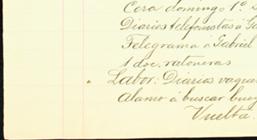 Cera domingo 1º
Diarios telefonistas á
Telegrama á Gabriel
1 dsc. ratoneras
Labor: Diarios
Alamo á buscar
Vuelta